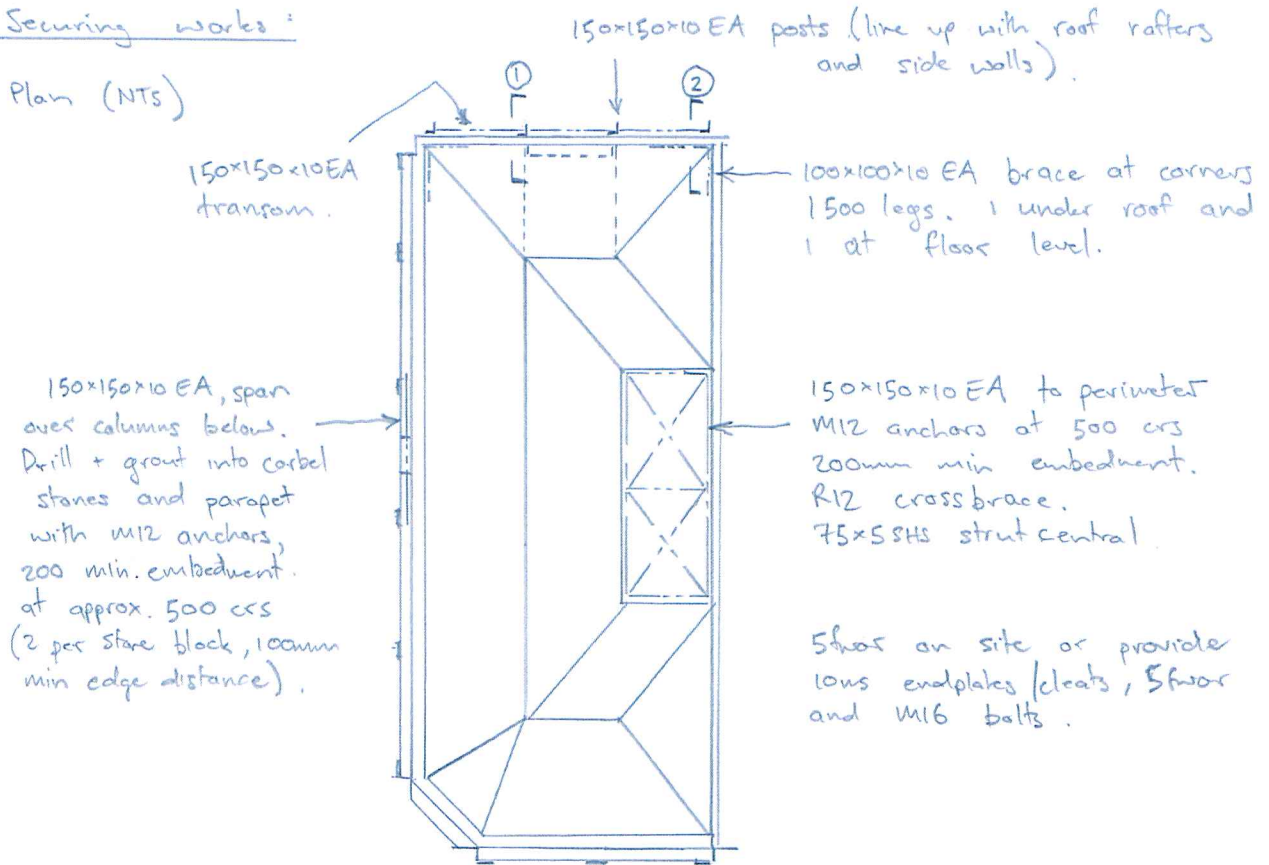 Securing works :
Plan (NTS)
150x150x10 EA posts (line up with roof rafters
and side walls).
1
2
150x150x10 EA
transom.
100x100x10 EA brace at corners
1500 legs. 1 under roof and
1 at floor level.
150x150x10 EA, span
over columns below.
Drill + grout into corbel
stones and parapet
with M12 anchors,
200 min. embedment.
at approx. 500 crs
(2 per stone block, 100mm
min edge distance).
150x150x10 EA to perimeter
M12 anchors at 500 crs
200mm min embedment.
R12 crossbrace.
75x5 SHS strut central
5fwar on site or provide
10ms endplates/cleats, 5fwar
and M16 bolts.